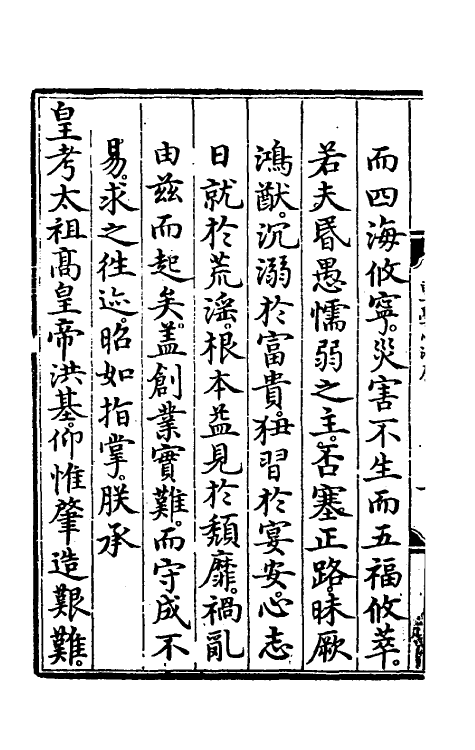 而四海攸寧。災害不生而五福攸萃。
若夫昬愚懦弱之主。否塞正路。昧厥
鴻猷。沉溺於富貴。狃習於宴安。心志
日就於荒滛。根本益見於頽靡。禍亂
由兹而起矣。盖創業實難。而守成不
易。求之徃迹。昭如指掌。朕承
皇考太祖髙皇帝洪基。仰惟肇造艱難。